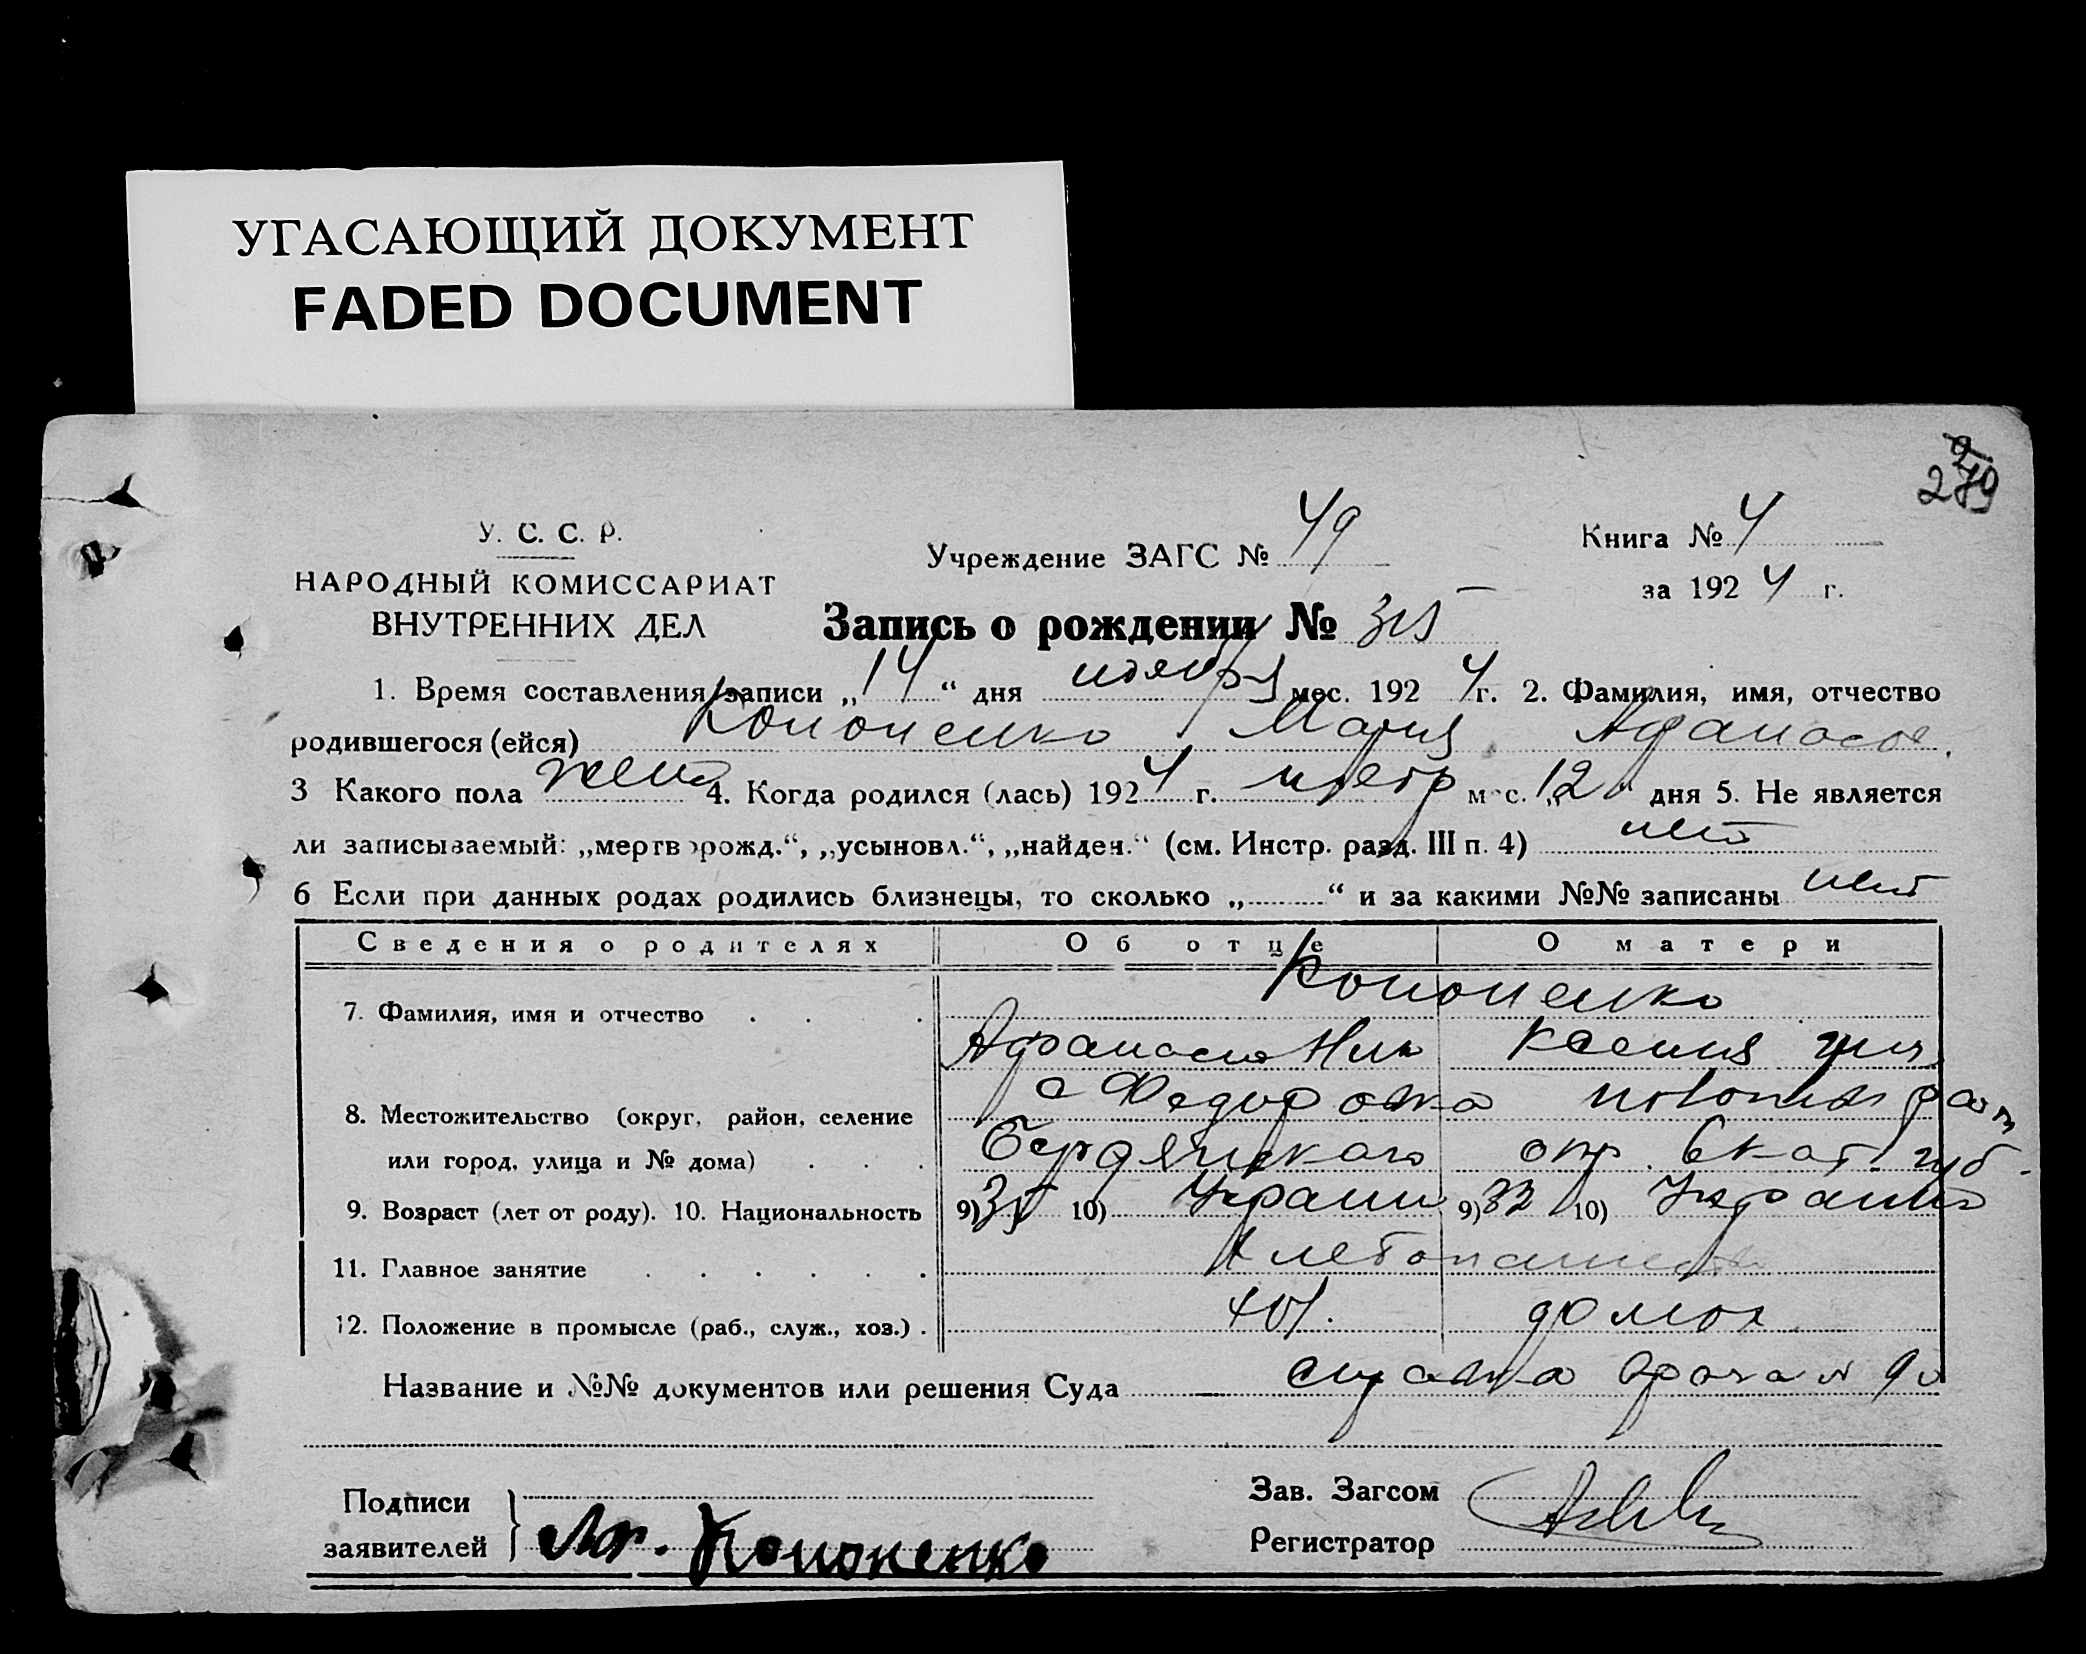 УГАСАЮЩИЙ ДОКУМЕНТ
FADED DOCUMENT
279
У. С. С. Р.
НАРОДНЫЙ КОМИССАРИАТ
ВНУТРЕННИХ ДЕЛ
Учреждение ЗАГС № 49
Книга № 4
за 1924 г.
Запись о рождении № 315
1. Время составления записи „14“ дня ноября мес. 1924 г. 2. Фамилия, имя, отчество
родившегося (ейся) Кононенко Мария Афанасов.
3 Какого пола жен 4. Когда родился (лась) 1924 г. ноябр мес. „12“ дня 5. Не является
ли записываемый: „мертворожд.“, „усыновл.“, „найден.“ (см. Инстр. разд. III п. 4) нет
6 Если при данных родах родились близнецы, то сколько „.........“ и за какими №№ записаны нет
Сведения о родителях Об отце О матери
Кононенко
7. Фамилия, имя и отчество
Афанасий Ник Ксения
с Федоровка
8. Местожительство (округ, район, селение
или город, улица и № дома)
Бердянского окр. Екат. губ.
9. Возраст (лет от роду). 10. Национальность 9) 35 10) Украин 9) 32 10) Украин
11. Главное занятие Хлебопашество
12. Положение в промысле (раб., служ., хоз.) домох
Название и №№ документов или решения Суда справка врача № 90
Подписи
заявителей
Кононенко
Зав. Загсом
Регистратор